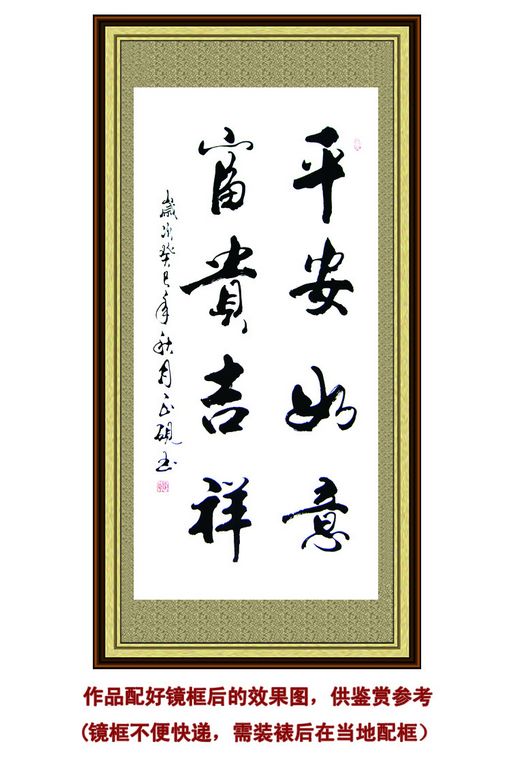 平安如意
富貴吉祥
歲次癸巳年秋月正硯书
作品配好镜框后的效果图，供鉴赏参考
(镜框不便快递，需装裱后在当地配框）